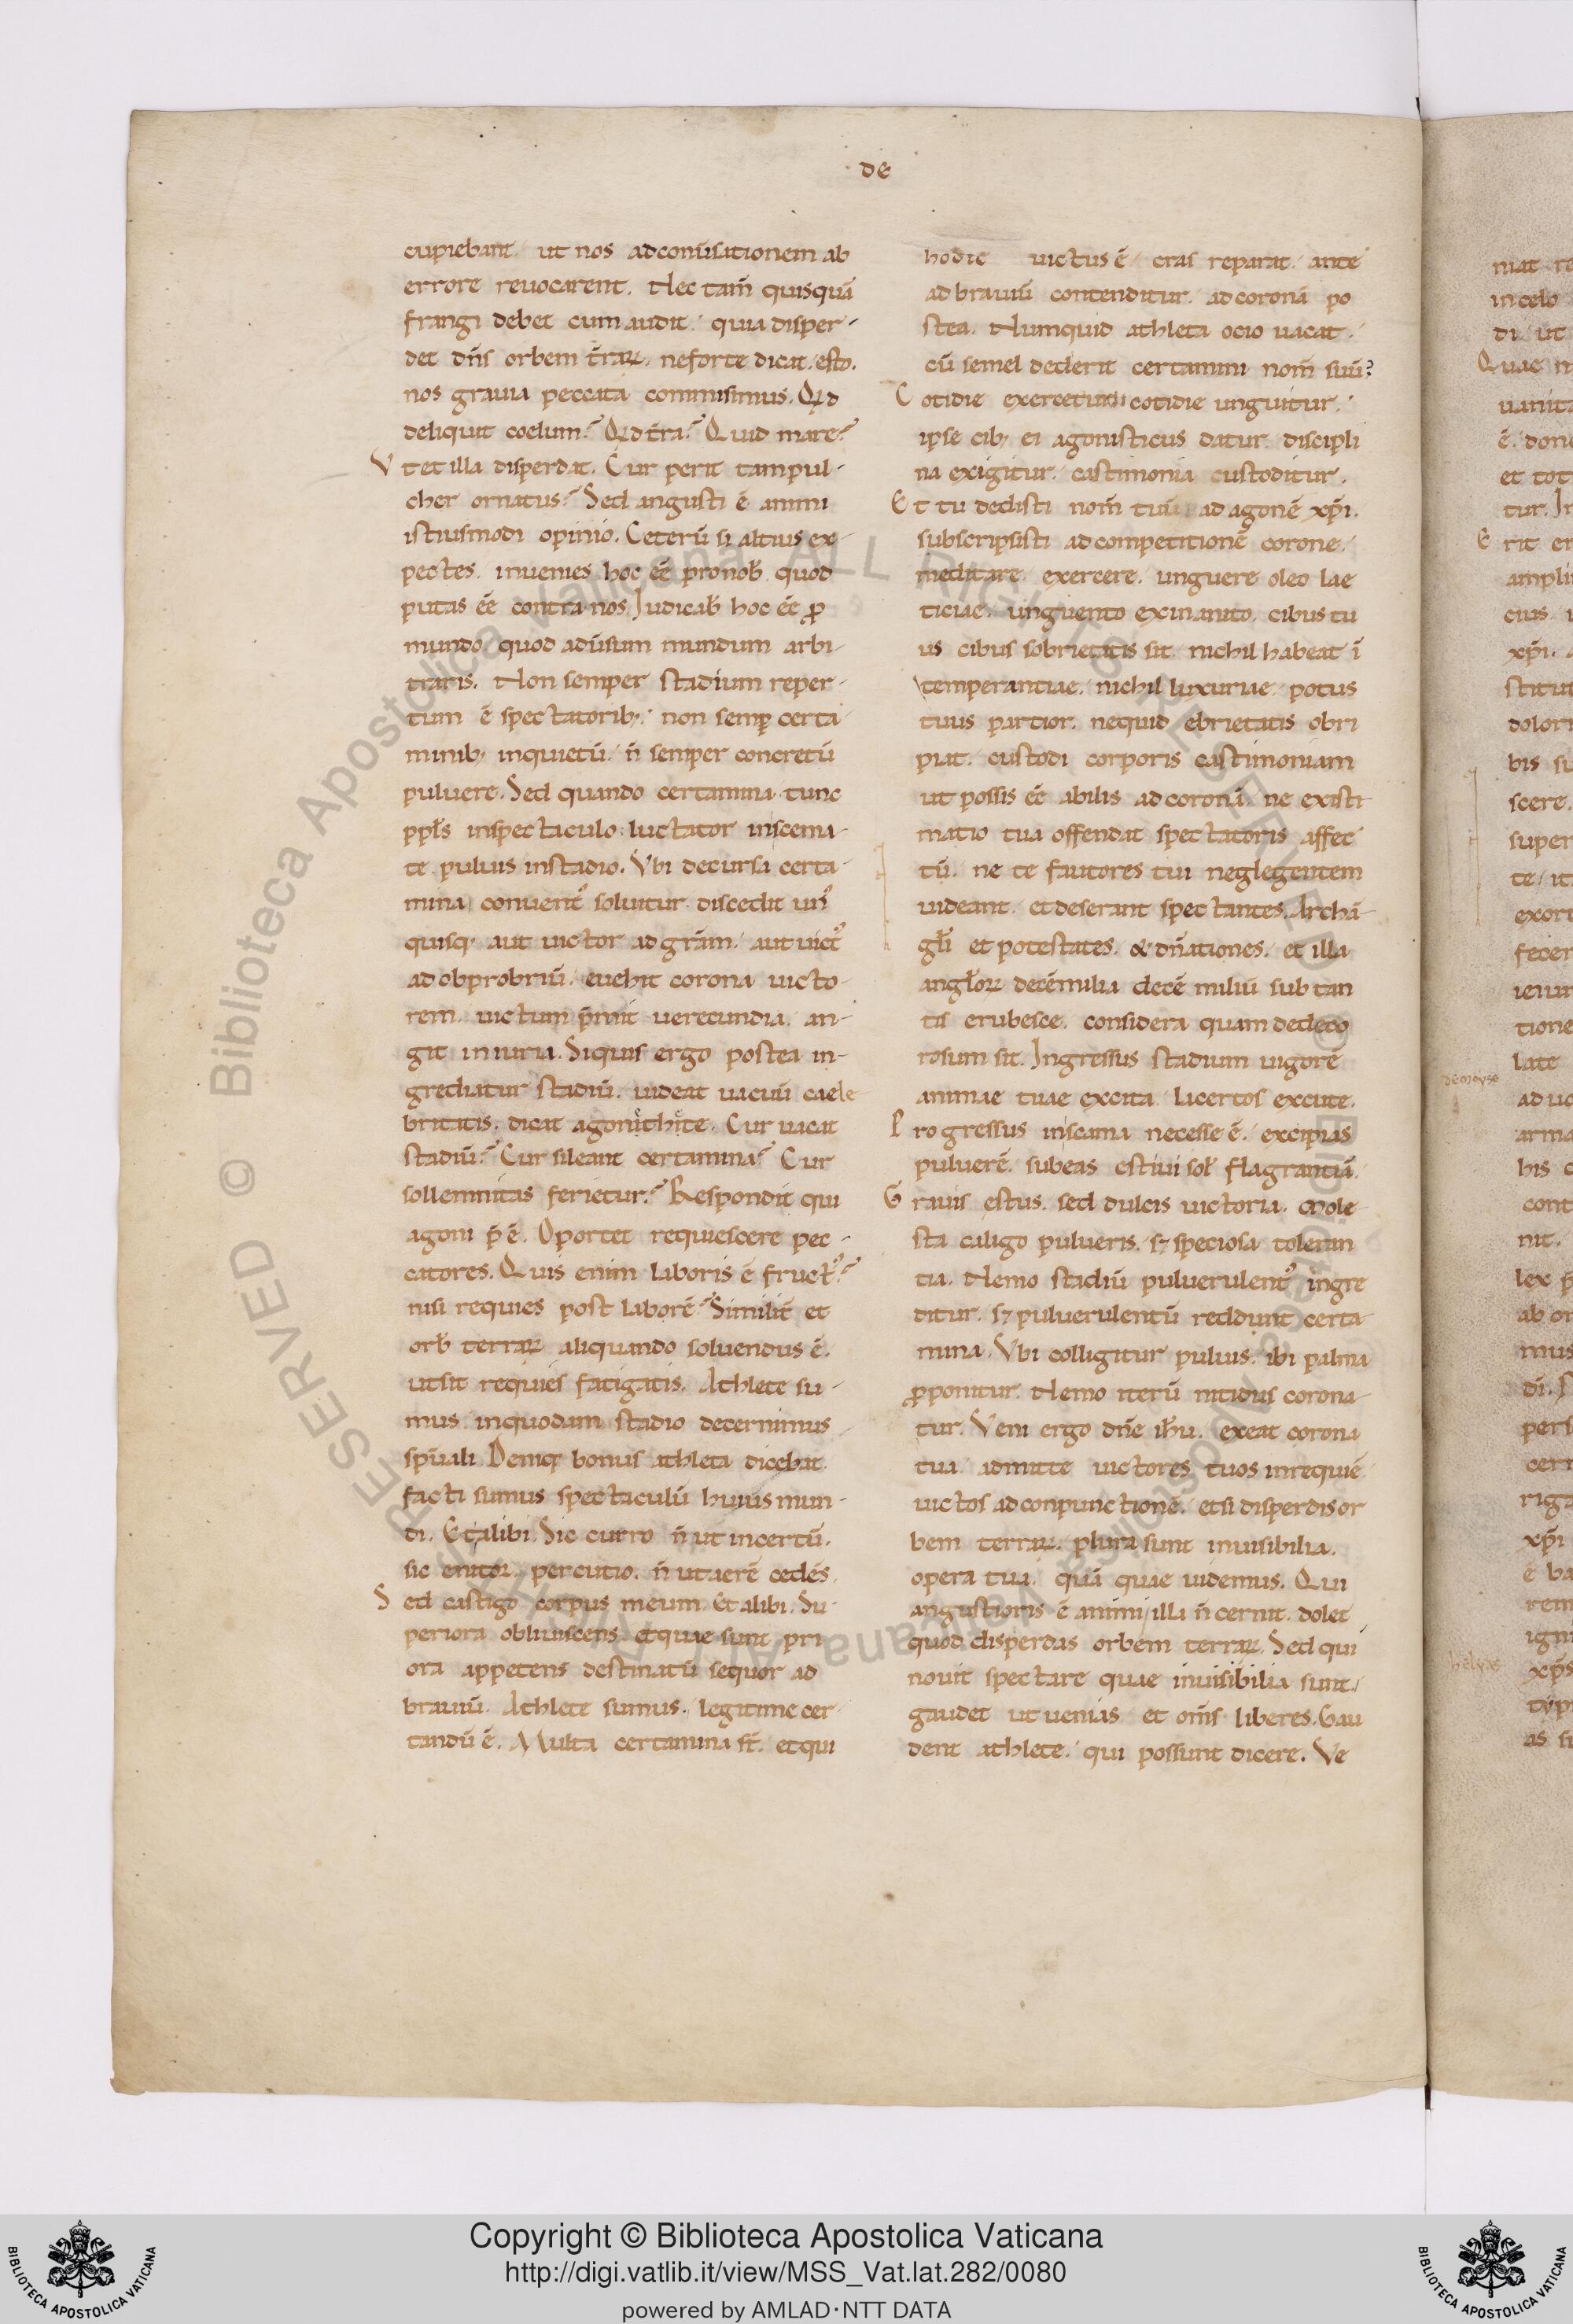 de
cupiebant. ut nos adconūsationem ab
errore reuocarent. Nec tam̄ quisquā
frangi debet cum audit. quia disper-
det dn̄s orbem t̄raꝝ. neforte dicat. esto.
nos grauia peccata commisimus. Qđ
deliquit coelum? Qđ t̄ra? Quid mare?
Vt et illa disperdat. Cur perit tampul-
cher ornatus? Sed angusti ē animi
istiusmodi opinio. Ceterū si altius ex-
pectes. inuenies hoc ēē pronob̄. quod
putas ēē contra nos. Iudicab̄ hoc ēē ꝓ
mundo quod adūsum mundum arbi-
traris. Non semper stadium reper-
tum ē spectatorib; non semꝑ certa-
minib; inquietū. n̄ semper concretū
puluere. Sed quando certamina. tunc
ppl̄s inspectaculo. luctator inscema-
te. puluis instadio. Vbi decursa certa-
mina conuenꝰ soluitur. discedit unꝰ
quisq; aut uictor ad grām. aut uictꝰ
ad obprobriū. euehit corona uicto-
rem. uictum p̄mit uerecundia. an-
git iniuria. Siquis ergo postea in-
grediatur stadiū. uideat uacuū caele
britatis. dicat agonithite. Cur uacat
stadiū? Cur sileant certamina? Cur
sollemnitas ferietur? Respondit qui
agoni p̄ ē. Oportet requiescere pec-
catores. Quis enim laboris ē fructꝰ?
nisi requies post laborē? Similit̄ et
orb̄ terraꝝ aliquando soluendus ē.
utsit requies fatigatis. Athlete su-
mus. inquodam stadio decernimus
sp̄uali. Deniq; bonus athleta dicebat.
facti sumus spectaculū huius mun-
di. Et alibi. Sic curro n̄ ut incertū.
sic percutio. n̄ ut aerē cedēs.
Sed castigo corpus meum. Et alibi. Su-
periora obliuiscens. etquae sunt pri
ora appetens destinatū sequor ad
brauiū. Athlete sumus. legitime cer
tandū ē. Multa certamina st̄. etqui
hodie uictus ē cras reparat. ante
ad brauiū contenditur. ad coronā po
stea. Numquid athleta ocio uacat.
cū semel dederit certamini nom̄ suū?
Cotidie exercetur cotidie unguitur.
ipse cib; ei agonisticus datur. discipli
na exigitur. castimonia custoditur.
Et tu dedisti nom̄ tuū ad agonē xp̄i.
subscripsisti ad competitionē corone.
meditare. exercere. unguere oleo lae
ticiae. unguento exinanito. cibus tu
us cibus sobrietatis sit. nichil habeat ī
temperantiae. nichil luxuriae. potus
tuus partior. nequid ebrietatis obri
piat. custodi corporis castimoniam
ut possis ēē abilis ad coronā. ne existi
matio tua offendat spectatoris affec
tū. ne te fautores tui neglegentem
uideant. et deserant spectantes. Archā-
gl̄i et potestates. & dn̄ationes. et illa
angl̄oꝝ decēmilia decē miliū sub tan
tis erubesce. considera quam dedeco
rosum sit. Ingressus stadium uigorē
animae tuae excita. lacertos excute.
Progressus inscama necesse ē. excipias
puluerē. subeas estiui sol̄ flagrantiā.
Grauis estus. sed dulcis uictoria. mole
sta caligo pulueris. sꝫ speciosa toleran
tia. Nemo stadiū puluerulentꝰ ingre
ditur. sꝫ puluerulentū reddunt certa
mina. Vbi colligitur puluis. ibi palma
ꝓponitur. Nemo iterū nitidus corona
tur. Veni ergo dn̄e ih̄u. exeat corona
tua. admitte uictores tuos inrequiē
uictos ad conpunctionē. etsi disperdis or
bem terraꝝ. plura sunt inuisibilia.
opera tua. quā quae uidemus. Qui
angustioris ē animi illa n̄ cernit. dolet
quod disperdas orbem terraꝝ. Sed qui
nouit spectare quae inuisibilia sunt.
gaudet ut uenias et om̄s liberes. Gau
dent athlete. qui possunt dicere. Ve
Copyright © Biblioteca Apostolica Vaticana
http://digi.vatlib.it/view/MSS_Vat.lat.282/0080
powered by AMLAD·NTT DATA
BIBLIOTECA APOSTOLICA VATICANA
BIBLIOTECA APOSTOLICA VATICANA